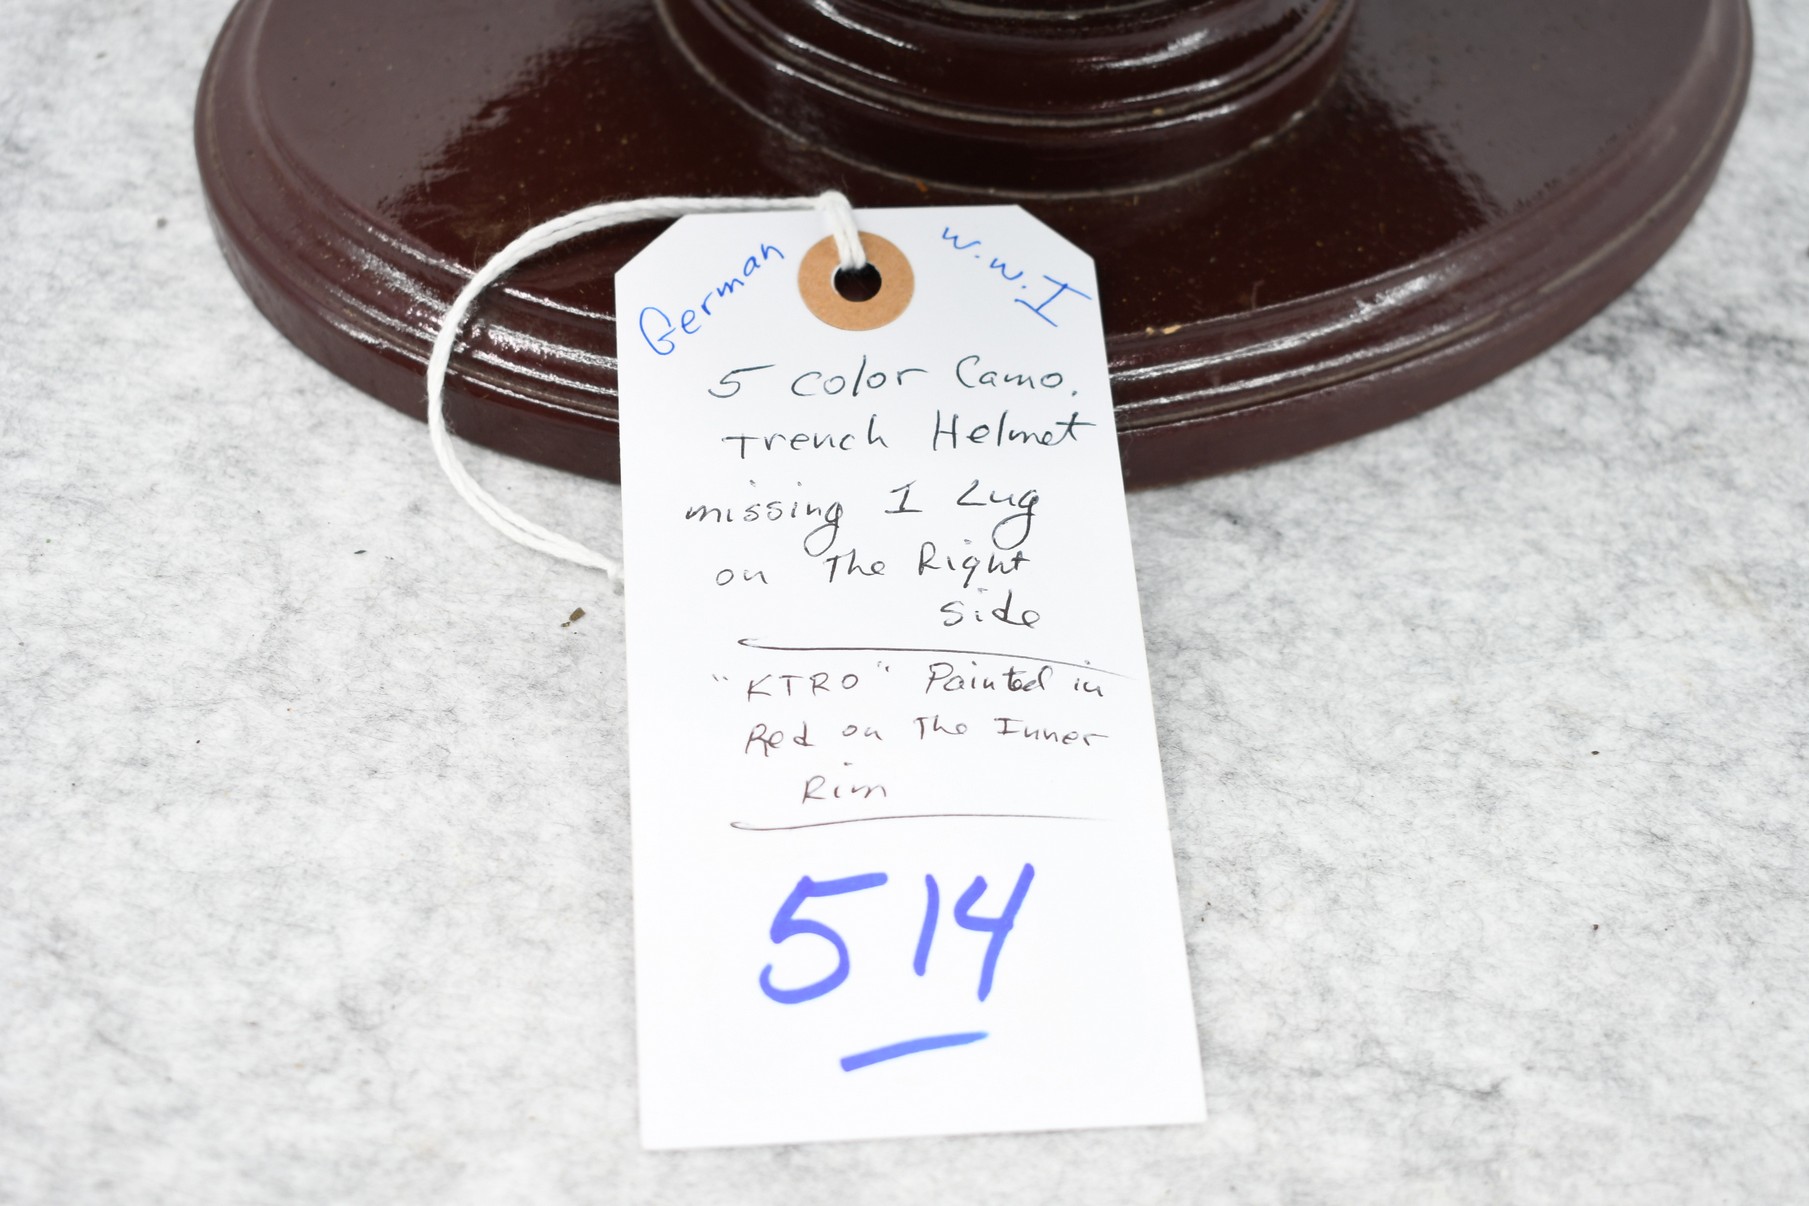 German W.W.I
5 color Camo.
Trench Helmet
missing 1 Lug
on The Right
side
"KTRO" Painted in
Red on The Inner
Rim
514